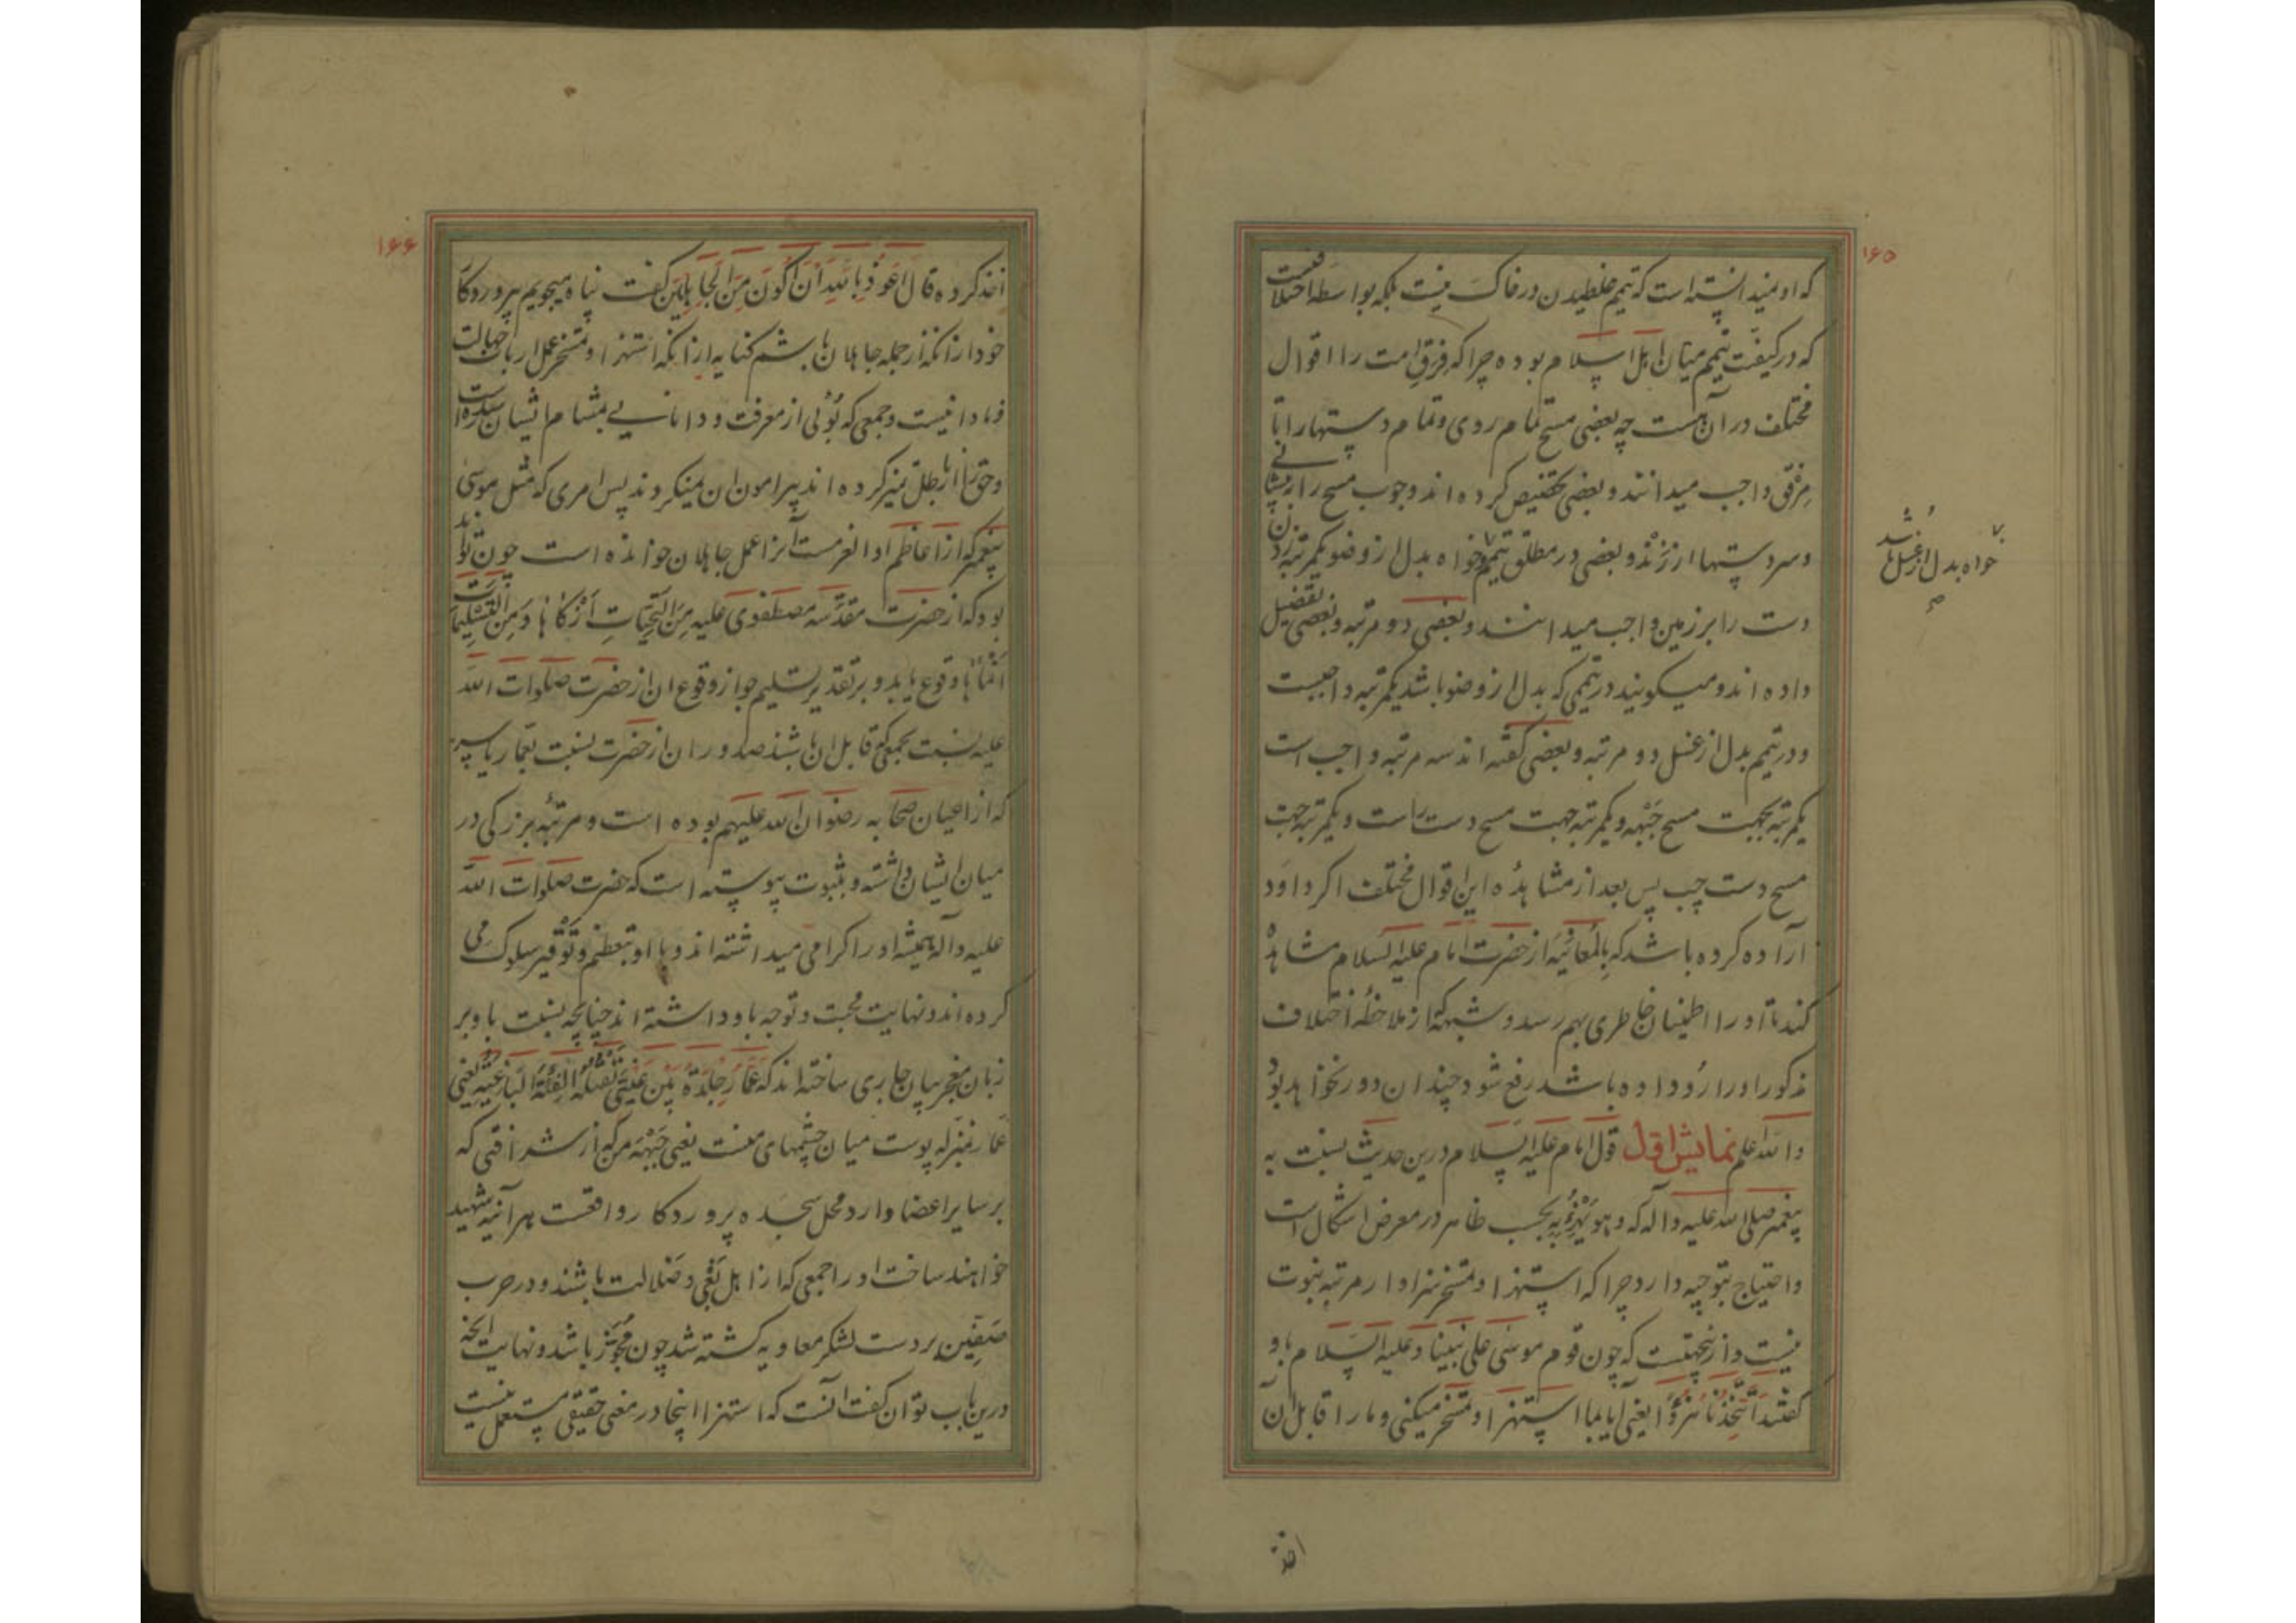 ۱۶۵
که او نمیدانسته است که تیمم غلطیدن در خاک نیست بلکه بواسطه اختلافیست
که در کیفیت تیمم میان اهل اسلام بوده چرا که فرق امت را اقوال
مختلف در آن هست چه بعضی مسح تمام روی و تمام دستها را تا
مرفق واجب میدانند و بعضی تخصیص کرده اند وجوب مسح را به پیشانی
و سر دستها از زند و بعضی در مطلق تیمم خواه بدل از وضو یکمرتبه زدن
خواه بدل از غسل باشد
دست را بر زمین واجب میدانند و بعضی دو مرتبه و بعضی تفضیل
داده اند و میگویند در تیممی که بدل از وضو باشد یکمرتبه واجبست
و در تیمم بدل از غسل دو مرتبه و بعضی گفته اند سه مرتبه واجب است
یکمرتبه بجهت مسح جبهه و یکمرتبه جهت مسح دست راست و یکمرتبه جهت
مسح دست چپ پس بعد از مشاهده این اقوال مختلف اگر داود
اراده کرده باشد که بالمعاینه از حضرت امام علیه السلام مشاهده
کند تا او را اطمینان خاطری بهم رسد و شبهه که از ملاحظه اختلاف
مذکور او را رو داده باشد رفع شود چندان دور نخواهد بود
والله اعلم نمایش اول قول امام علیه السلام درین حدیث نسبت به
پیغمبر صلی الله علیه و آله که و هو یهزئ به بحسب ظاهر در معرض اشکال است
و احتیاج بتوجیه دارد چرا که استهزا و تمسخر سزاوار مرتبه نبوت
نیست و ازینجهتست که چون قوم موسی علی نبینا و علیه السلام باو
گفتند أتتخذنا هزوا یعنی آیا بما استهزا و تمسخر میکنی و ما را قابل آن
اخذ
۱۶۶
اخذ کرده قال اعوذ بالله ان اکون من الجاهلین گفت پناه میجویم بپروردگار
خود از آنکه از جمله جاهلان باشم کنایه از آنکه استهزا و تمسخر عمل ارباب جهالت
و نادانیست و جمعی که بوئی از معرفت و دانایی بمشام ایشان رسیده است
و حق را از باطل تمیز کرده اند پیرامون آن نمیگردند پس امری که مثل موسی
پیغمبر که از اعاظم اولوا العزمست آنرا عمل جاهلان خوانده است چون تواند
بود که از حضرت مقدسه مصطفوی علیه من التحیات ازکاها و من التسلیمات
انماها وقوع یابد و بر تقدیر تسلیم جواز وقوع آن از حضرت صلوات الله
علیه نسبت بجمعی که قابل آن باشند صدور آن از حضرت نسبت بعمار یاسر
که از اعیان صحابه رضوان الله علیهم بوده است و مرتبه بزرگی در
میان ایشان داشته و بثبوت پیوسته است که حضرت صلوات الله
علیه و آله همیشه او را گرامی میداشته اند و با او بتعظیم و توقیر سلوک می
کرده اند و نهایت محبت و توجه باو داشته اند چنانچه نسبت باو بر
زبان معجز بیان جاری ساخته اند که عمار جلدة بین عینی تقتله الفئة الباغیة یعنی
عمار بمنزله پوست میان چشمهای منست یعنی جبهه من که از شرافتی که
بر سایر اعضا دارد محل سجده پروردگار واقعست هر آینه شهید
خواهند ساخت او را جمعی که از اهل بغی و ضلالت باشند و در حرب
صفین بر دست لشکر معاویه کشته شد چون مجوز باشد و نهایت آنچه
درین باب توان گفت آنست که استهزا اینجا در معنی حقیقی مستعمل نیست